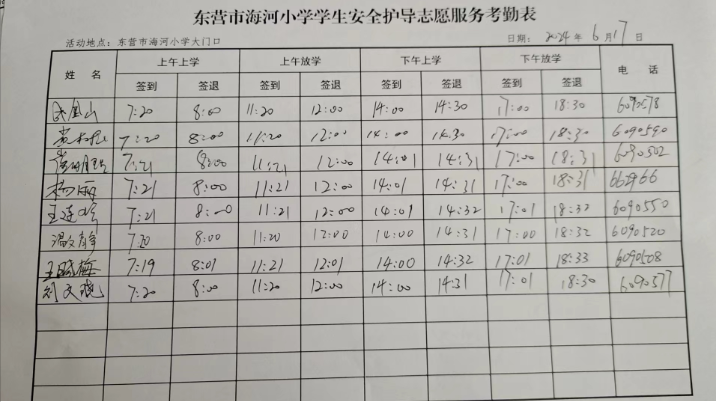 东营市海河小学学生安全护导志愿服务考勤表
活动地点：东营市海河小学大门口 日期：2024年6月17日
姓 名 上午上学 上午放学 下午上学 下午放学 电 话
签到 签退 签到 签退 签到 签退 签到 签退
7:20 8:00 11:20 12:00 14:00 14:30 17:00 18:30 6090578
7:20 8:00 11:20 12:00 14:00 14:30 17:00 18:30 6090590
7:21 8:00 11:21 12:00 14:01 14:31 17:00 18:31 6090502
杨丽 7:21 8:00 11:21 12:00 14:01 14:31 17:00 18:31
7:21 8:00 11:21 12:00 14:01 14:32 17:01 18:32 6090550
温文静 7:20 8:00 11:20 12:00 14:00 14:31 17:00 18:32 6090520
王晓梅 7:19 8:01 11:21 12:01 14:00 14:32 17:01 18:33 6090508
刘文晓 7:20 8:00 11:20 12:00 14:00 14:31 17:01 18:30 6090577